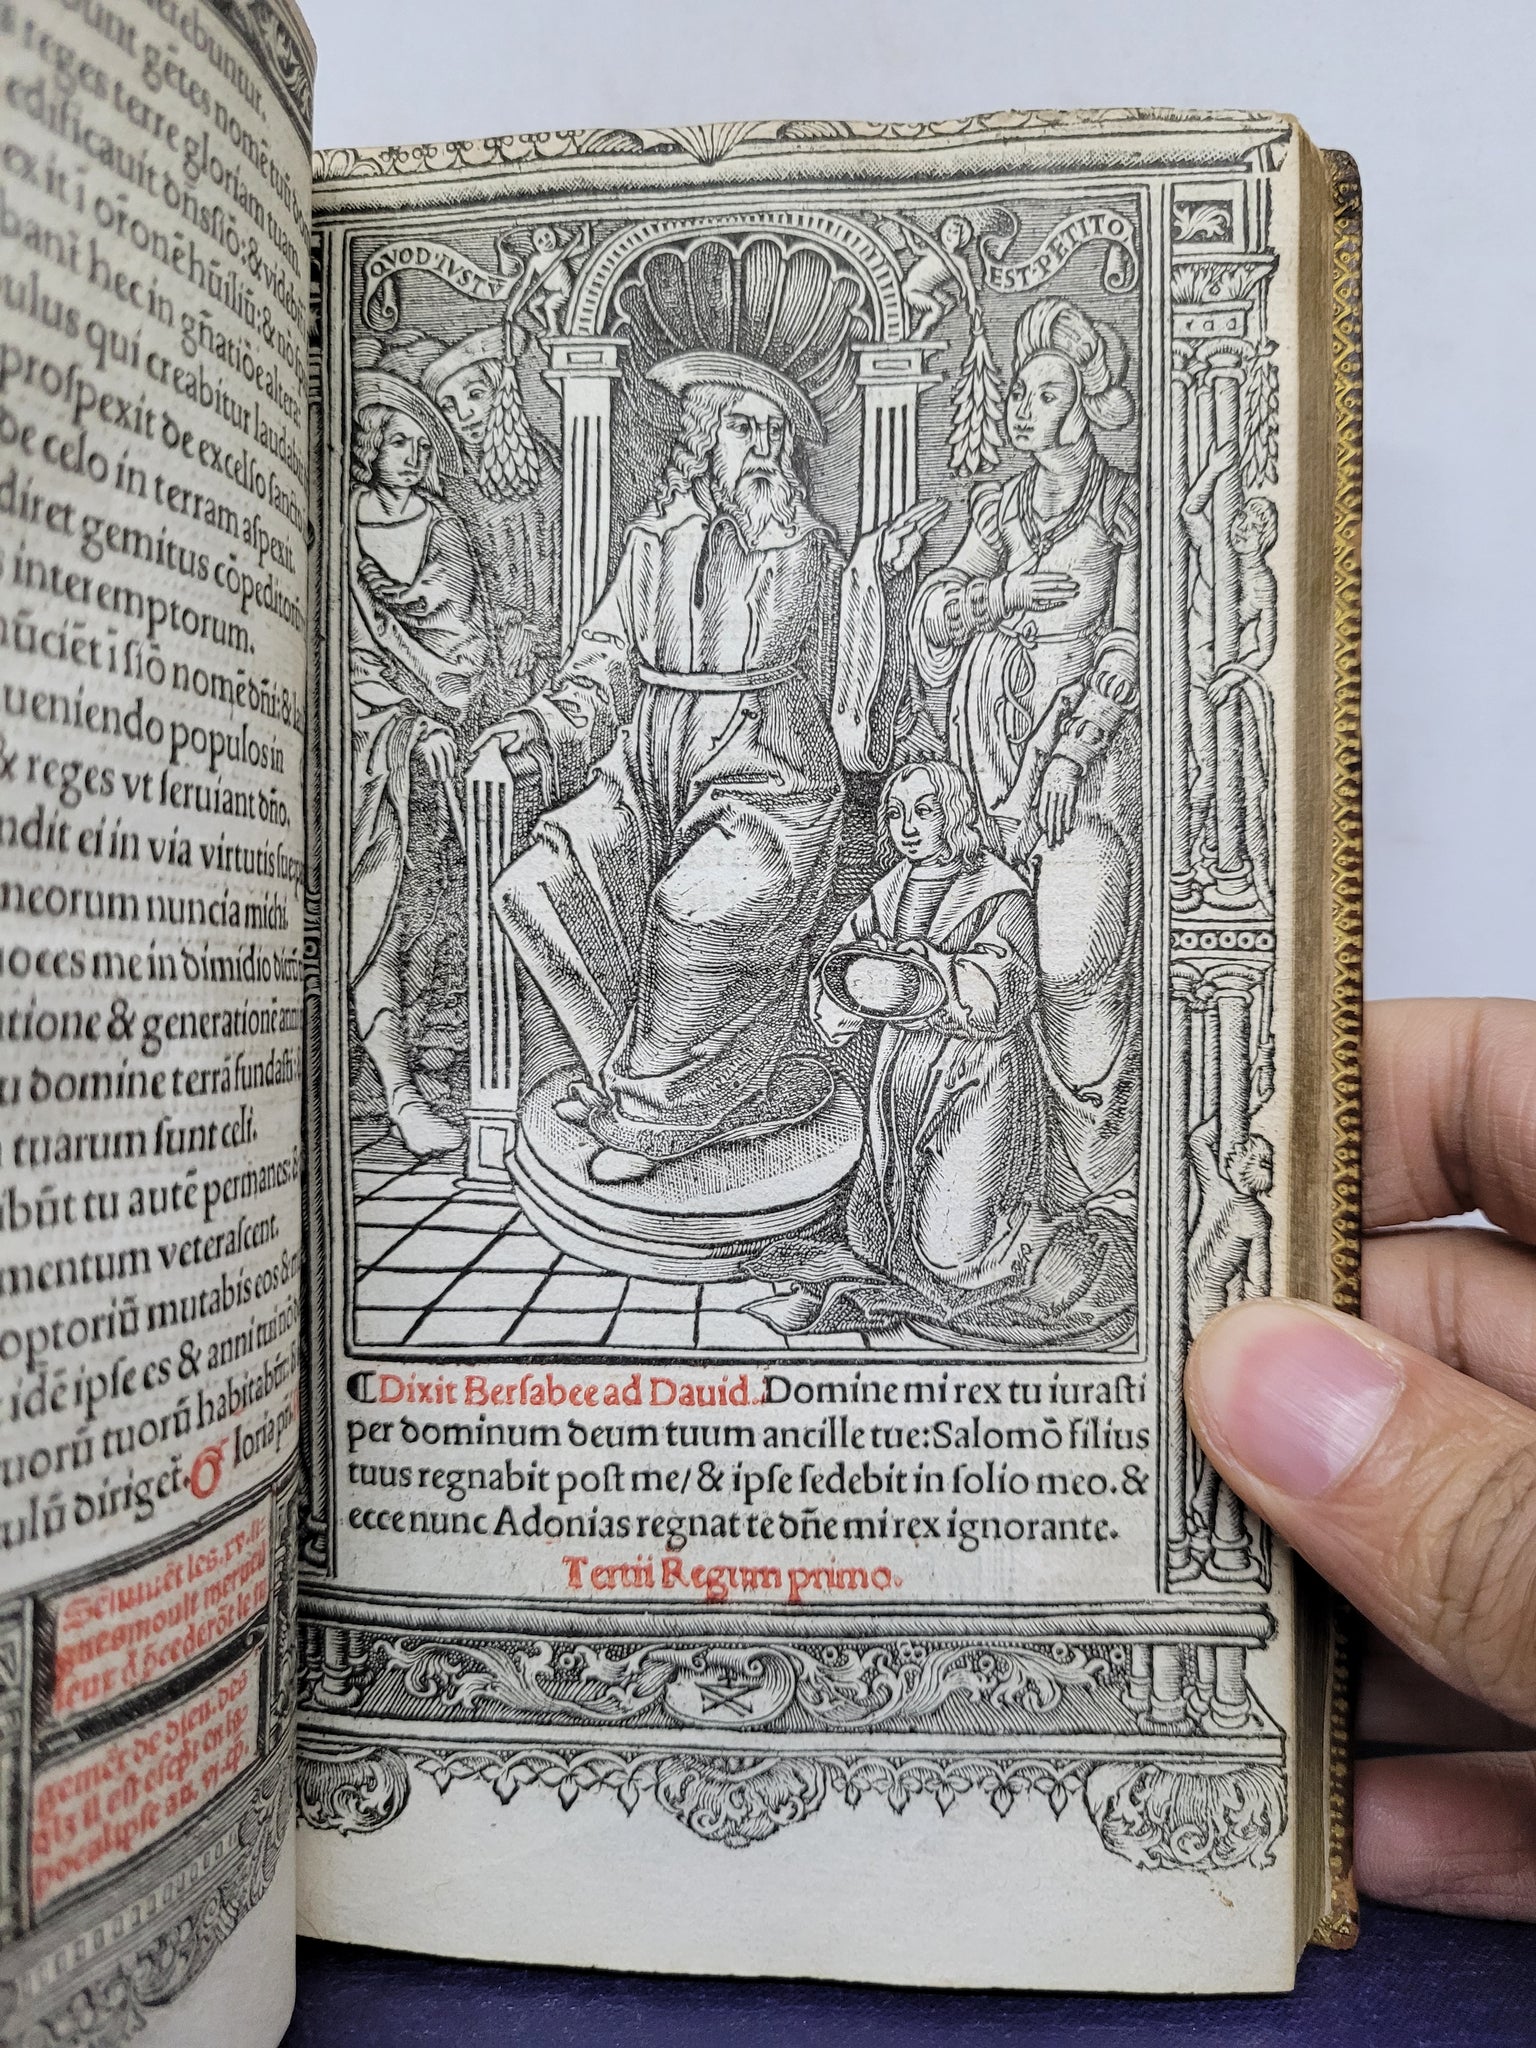 buntur.
gētes nomē tuū
reges terre gloriam tuam.
edificauit dn̄s siō: & videbit
exit ī or̄onē hūiliū: & nō
hec in gn̄atiōe altera:
populus qui creabitur laudabit
prospexit de excelso sancto
de celo in terram aspexit.
diret gemitus cōpeditorū
interemptorum.
ī siō nomē dn̄i: &
ueniendo populos in
& reges vt seruiant dn̄o.
ei in via virtutis sue
meorum nuncia michi.
me in dimidio dierū
& generationē anni
domine terrā fundasti:
tuarum sunt celi.
tu autē permanes: &
mentum veterascent.
optoriū mutabis eos &
idē ipse es & anni tui nō
tuorū habitabūt: &
diriget. Gloria pr̄i
les
moult
le
de dieu. des
il est
QVOD IVSTV EST PETITO
¶ Dixit Bersabee ad Dauid. Domine mi rex tu iurasti
per dominum deum tuum ancille tue: Salomō filius
tuus regnabit post me/ & ipse sedebit in solio meo. &
ecce nunc Adonias regnat te dn̄e mi rex ignorante.
Tertii Regum primo.